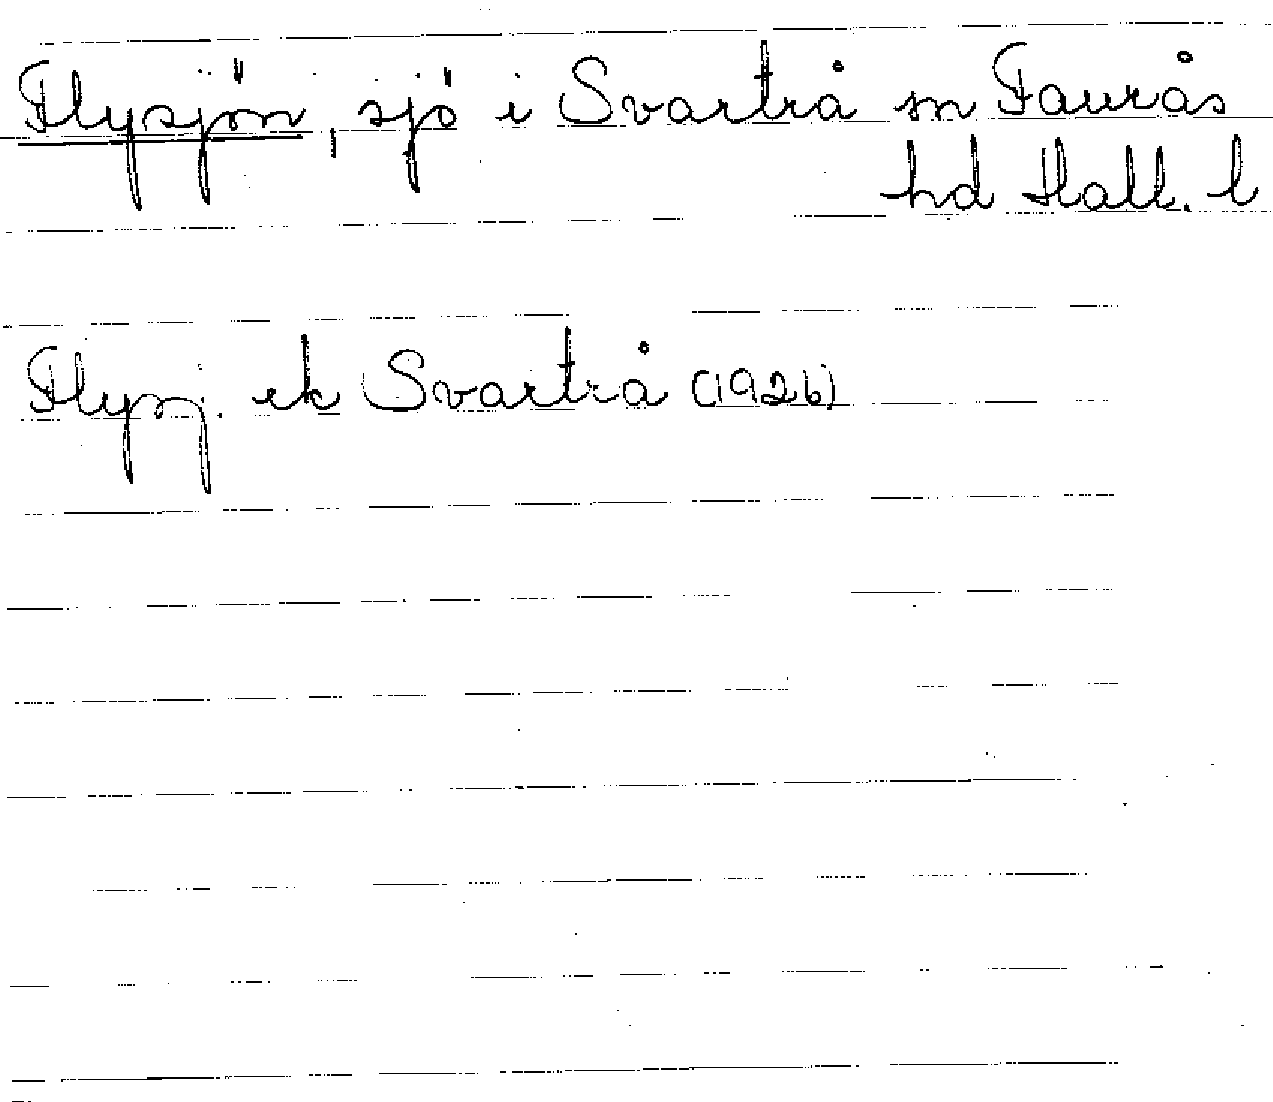 Flysjön, sjö i Svartrå sn Faurås
hd Hall. l
Flysj. ek Svartrå (1926)